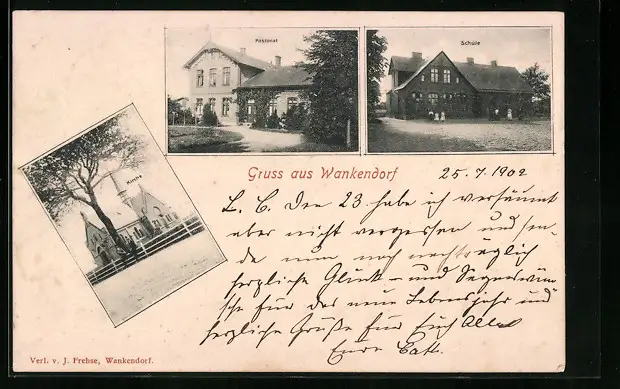 Pastorat
Schule
Kirche
Gruss aus Wankendorf
25. 7. 1902
L. C. Den 23. habe ich versäumt
aber nicht vergessen und sen-
de nun noch nachträglich
herzliche Glück- und Segenswün-
sche für das neue Lebensjahr und
herzliche Grüße für Euch Alle
Eure Cath.
Verl. v. J. Frehse, Wankendorf.